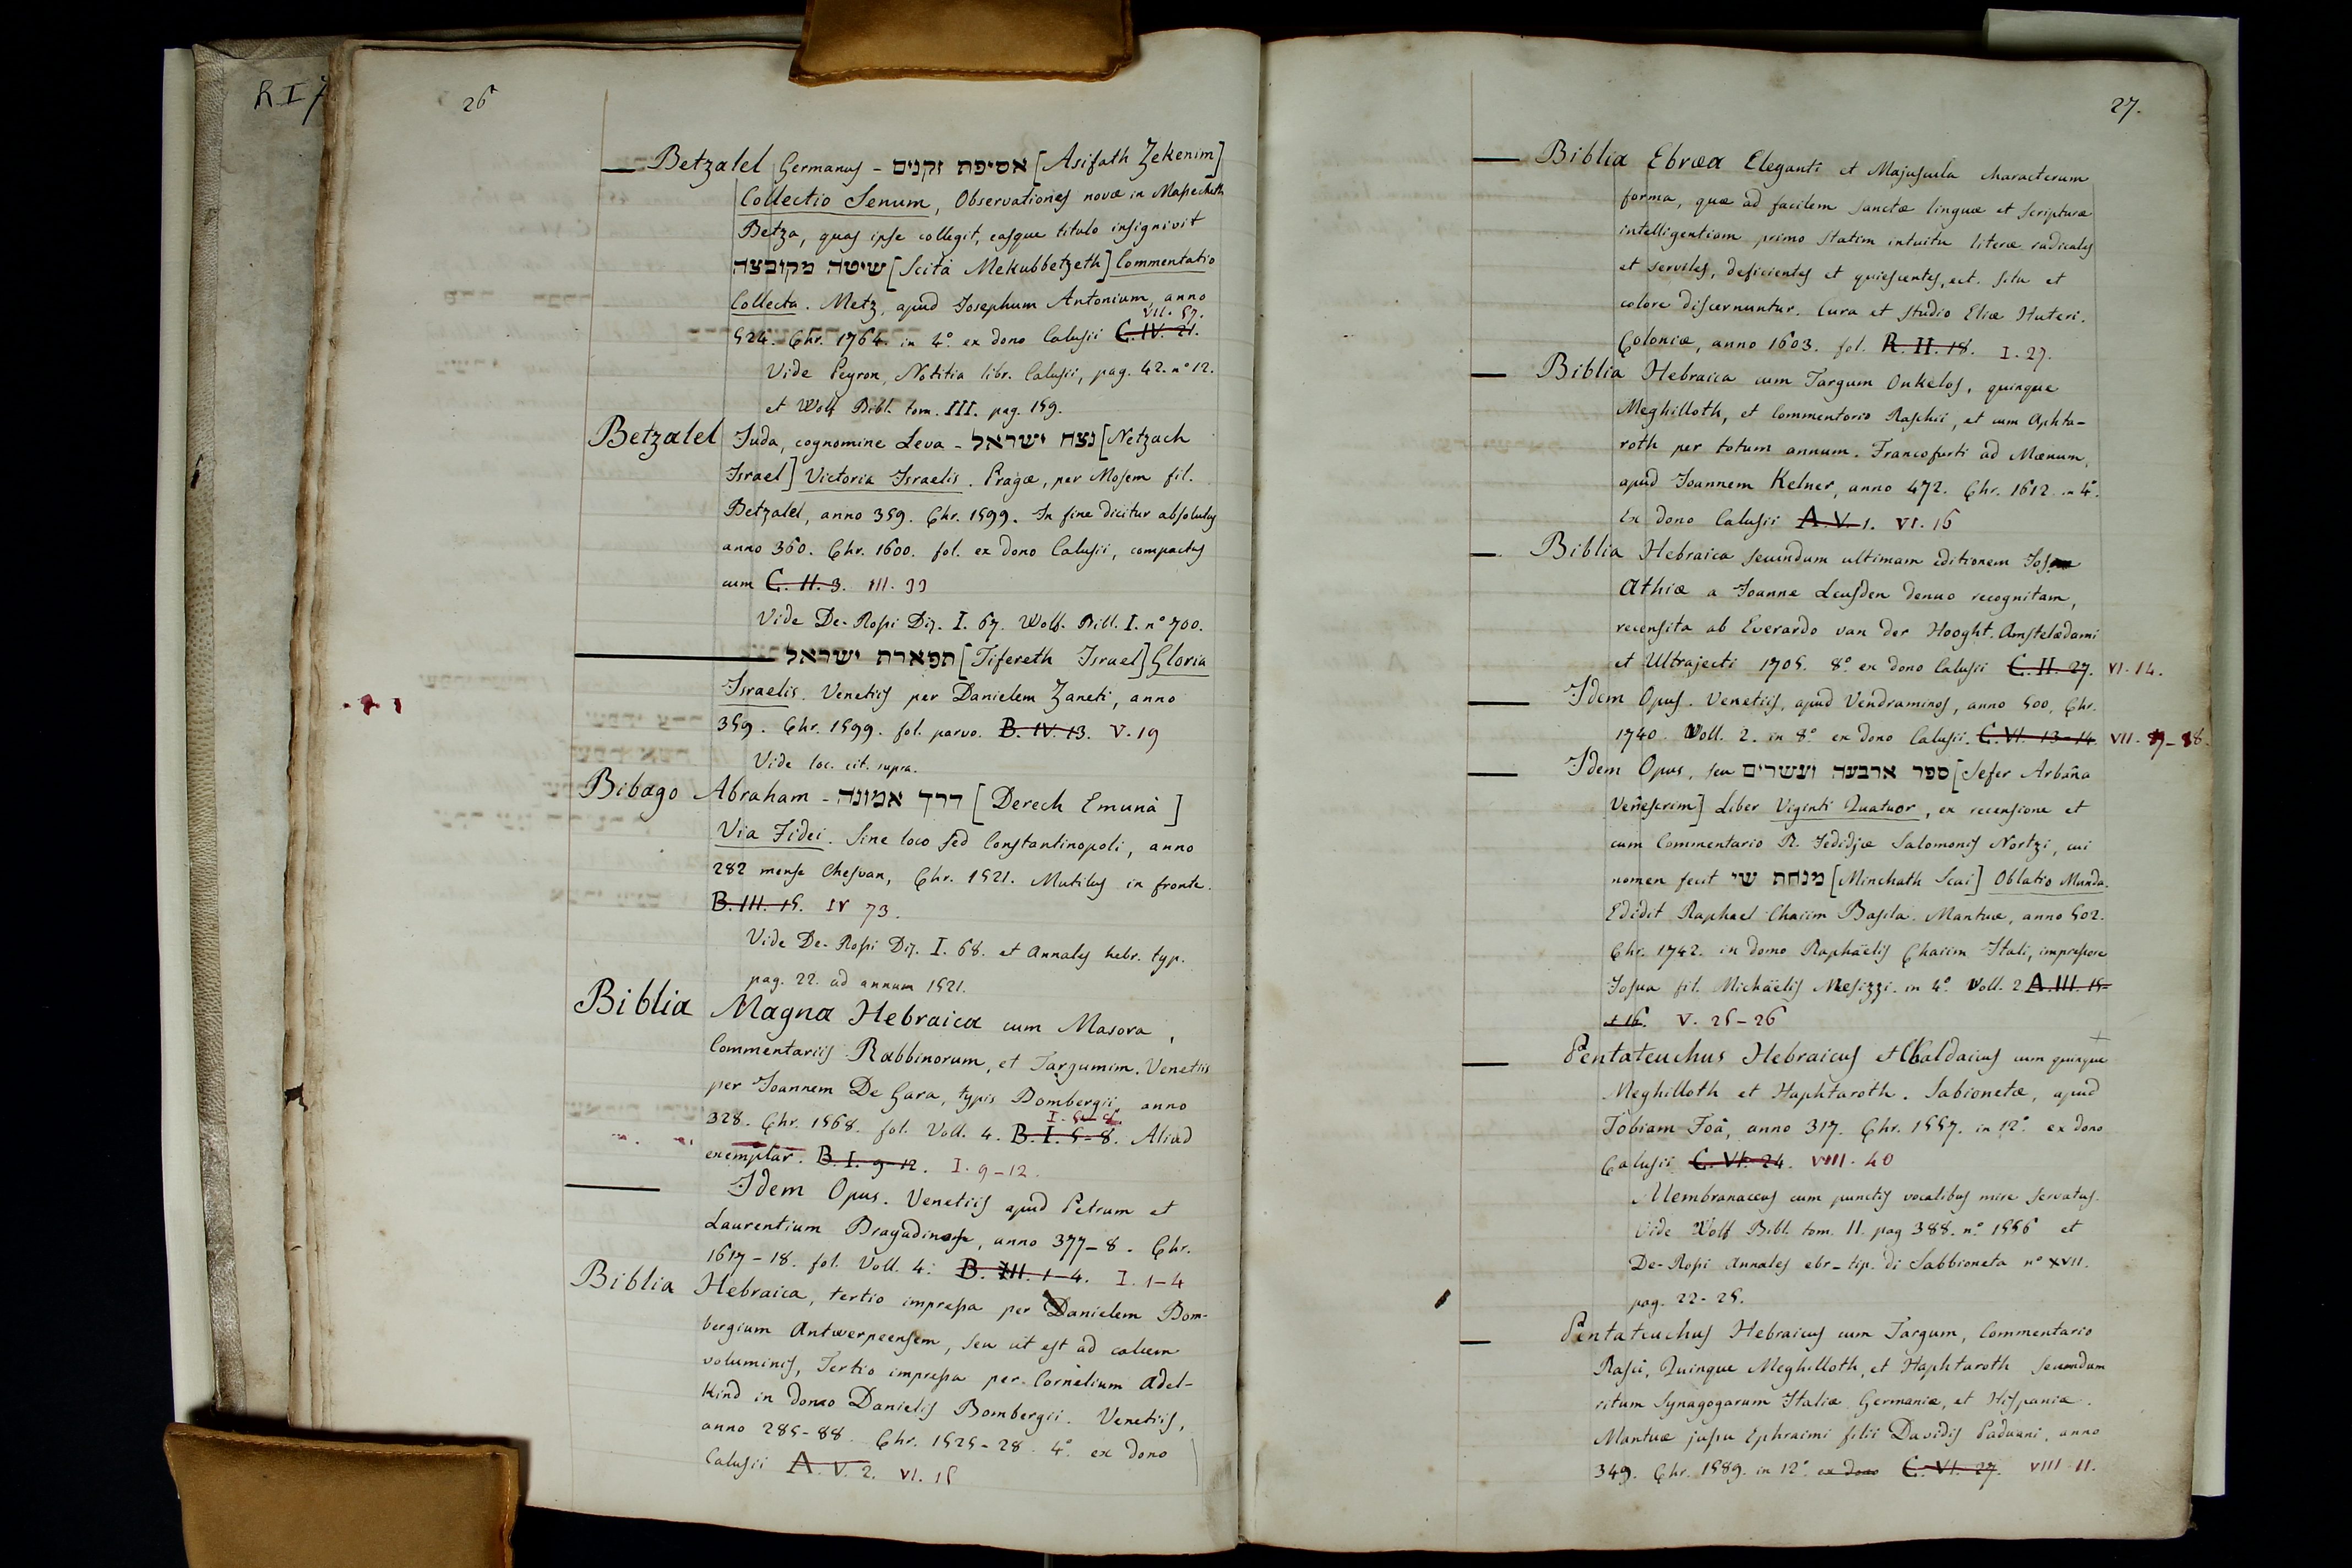 R I 7
26
— Betzalel Germanus - אסיפת זקנים [Asifath Zekenim]
Collectio Senum, Observationes novæ in Massecheth
Betza, quas ipse collegit, easque titulo insignivit
שיטה מקובצה [Scità Mekubbetzeth] Commentatio
Collecta. Metz, apud Josephum Antonium, anno
VII. 57.
524. Chr. 1764. in 4° ex dono Calusii C. IV. 21.
Vide Peyron, Notitia libr. Calusii, pag. 42. n° 12.
et Wolf Bibl. tom. III. pag. 159.
Betzalel Juda, cognomine Leva - נצח ישראל [Netzach
Israel] Victoria Israelis. Pragæ, per Mosem fil.
Betzalel, anno 359. Chr. 1599. In fine dicitur absolutus
anno 360. Chr. 1600. fol. ex dono Calusii, compactus
cum C. II. 3. III. 33
Vide De-Rossi Diz. I. 67. Wolf. Bibl. I. n° 700.
— תפארת ישראל [Tifereth Israel] Gloria
Israelis. Venetiis per Danielem Zaneti, anno
359. Chr. 1599. fol. parvo. B. IV. 13. V. 19
Vide loc. cit. supra.
Bibago Abraham - דרך אמונה [Derech Emunà]
Via Fidei. Sine loco sed Constantinopoli, anno
282 mense Chesvan, Chr. 1521. Mutilus in fronte.
B. III. 15. IV 73.
Vide De-Rossi Diz. I. 68. et Annales hebr. typ.
pag. 22. ad annum 1521.
Biblia Magna Hebraica cum Masora,
Commentariis Rabbinorum, et Targumim. Venetiis
per Joannem De Gara, typis Bombergii, anno
328. Chr. 1568. fol. Voll. 4. B. I. 5-8. Aliud
exemplar. B. I. 9-12. I. 9-12.
— Idem Opus. Venetiis apud Petrum et
Laurentium Bragadinos, anno 377-8. Chr.
1617-18. fol. Voll. 4. B. III. 1-4. I. 1-4
Biblia Hebraica, tertio impressa per Danielem Bom-
bergium Antwerpeensem, seu ut est ad calcem
voluminis, Tertio impressa per Cornelium Adel-
kind in domo Danielis Bombergii. Venetiis,
anno 285-88. Chr. 1525-28. 4° ex dono
Calusii A. V. 2. VI. 15
27.
— Biblia Ebræa Eleganti et Majuscula characterum
forma, quæ ad facilem sanctæ linguæ et scripturæ
intelligentiam primo statim intuitu literæ radicales
et serviles, deficientes et quiescentes, ect. situ et
colore discernuntur. Cura et studio Eliæ Huteri.
Coloniæ, anno 1603. fol. R. II. 18. I. 27.
— Biblia Hebraica cum Targum Onkelos, quinque
Meghilloth, et Commentario Raschii, et cum Aphta-
roth per totum annum. Francofurti ad Mœnum,
apud Joannem Kelner, anno 472. Chr. 1612. in 4°.
Ex dono Calusii A. V. 1. VI. 16
— Biblia Hebraica secundum ultimam editionem Jos.
Athiæ a Joanne Leusden denuo recognitam,
recensita ab Everardo van der Hooght. Amstelædami
et Ultrajecti 1705. 8° ex dono Calusii C. II. 27. VI. 14.
— Idem Opus. Venetiis, apud Vendraminos, anno 500, Chr.
1740. Voll. 2. in 8° ex dono Calusii. C. VI. 13-14. VII.
— Idem Opus, seu ספר ארבעה ועשרים [Sefer Arbâna
Venêscrim] Liber Viginti Quatuor, ex recensione et
cum Commentario R. Jedidjæ Salomonis Nortzi, cui
nomen fecit מנחת שי [Minchath Scai] Oblatio Munda.
Edidit Raphael Chaiim Basila. Mantuæ, anno 502.
Chr. 1742. in domo Raphaëlis Chaiim Itali, impressore
Josua fil. Michaëlis Mesizzi. in 4° Voll. 2 A. III. 15-
et 16. V. 25-26
— Pentateuchus Hebraicus et Chaldaicus cum quinque
Meghilloth et Haphtaroth. Sabionetæ, apud
Tobiam Foà, anno 317. Chr. 1557. in 12° ex dono
Calusii C. VI. 24. VIII. 40
Membranaceus cum punctis vocalibus mire servatus.
Vide Wolf Bibl. tom. II. pag 388. n° 1556 et
De-Rossi Annales ebr-tip. di Sabbioneta n° XVII.
pag. 22-25.
— Pentateuchus Hebraicus cum Targum, Commentario
Rasci, Quinque Meghilloth, et Haphtaroth secundum
ritum Synagogarum Italiæ, Germaniæ, et Hispaniæ.
Mantuæ jussu Ephraimi filii Davidis Paduani, anno
349. Chr. 1589. in 12° ex dono C. VI. 27. VIII. 11.